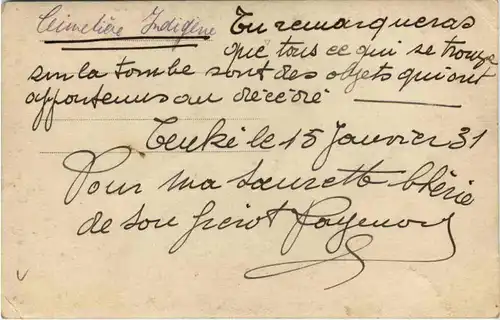 Cimetière Indigène Tu remarqueras
que tous ce qui se trouve
sur la tombe sont des objets qui ont
appartenus au décédé
le 15 Janvier 31
Pour ma sœurette chérie
de son frérot